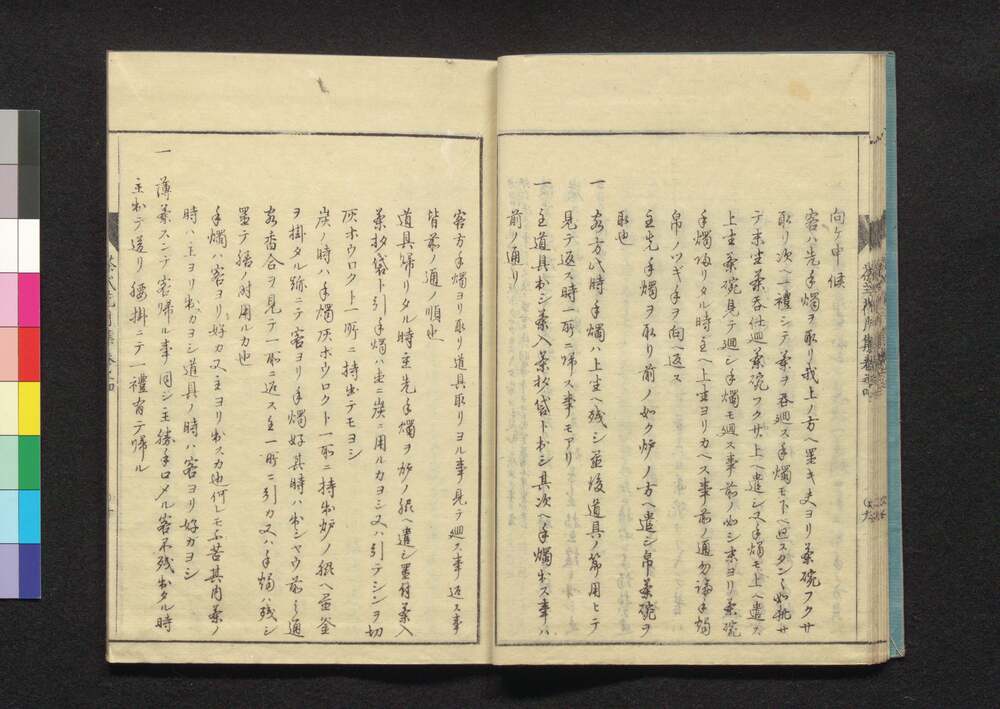 向ケ申候
客ハ先手燭ヲ取リ我上ノ方ヘ置キ夫ヨリ茶碗フクサ
取リ次ヘ一禮シテ茶ヲ呑廻ス手燭モ下ヘ
テ末坐茶呑仕廻茶碗フクサ上ヘ遣シ又手燭モ上ヘ遣ス
上坐茶碗見テ廻シ手燭モ廻ス事前ノ如シ末ヨリ茶碗
手燭返リタル時主ヘ上坐ヨリカヘス事前ノ通勿論手燭
帛ノツギ手ヲ向ヘ返ス
主先手燭ヲ取リ前ノ如ク炉ノ方ヘ遣シ帛茶碗ヲ
取也
一 客方此時手燭ハ上坐ヘ残シ並後道具ノ節用ヒテ
見テ返ス時一所ニ帰ス事モアリ
一 主道具出シ茶入茶杓袋ト出シ其次ヘ手燭出ス事ハ
前ノ通リ
客方手燭ヨリ取リ道具取リヨル事見テ廻ス事返ス事
皆前ノ通ノ順也
道具帰リタル時主先手燭ヲ炉ノ縁ヘ遣シ置付茶入
茶杓袋ト引手燭ハ炭ニ用ルカヨシ又ハ引テシンヲ切
灰ホウロクト一所ニ持出テモヨシ
炭ノ時ハ手燭灰ホウロクト一所ニ持出炉ノ縁ヘ置釜
ヲ掛タル跡ニテ客ヨリ手燭好其時ハ出シヤウ前ノ通
客香合ヲ見テ一所ニ返ス主一所ニ引カ又ハ手燭ハ残シ
置テ続ノ时用ルカ也
手燭ハ客ヨリ好カ又主ヨリ出スカ也何レモ不苦其内茶ノ
時ハ主ヨリ出カヨシ道具ノ時ハ客ヨリ好カヨシ
一 薄茶スンテ客帰ル事同シ主勝手口〆ル客不残出タル時
主出テ送リ腰掛ニテ一禮有テ帰ル